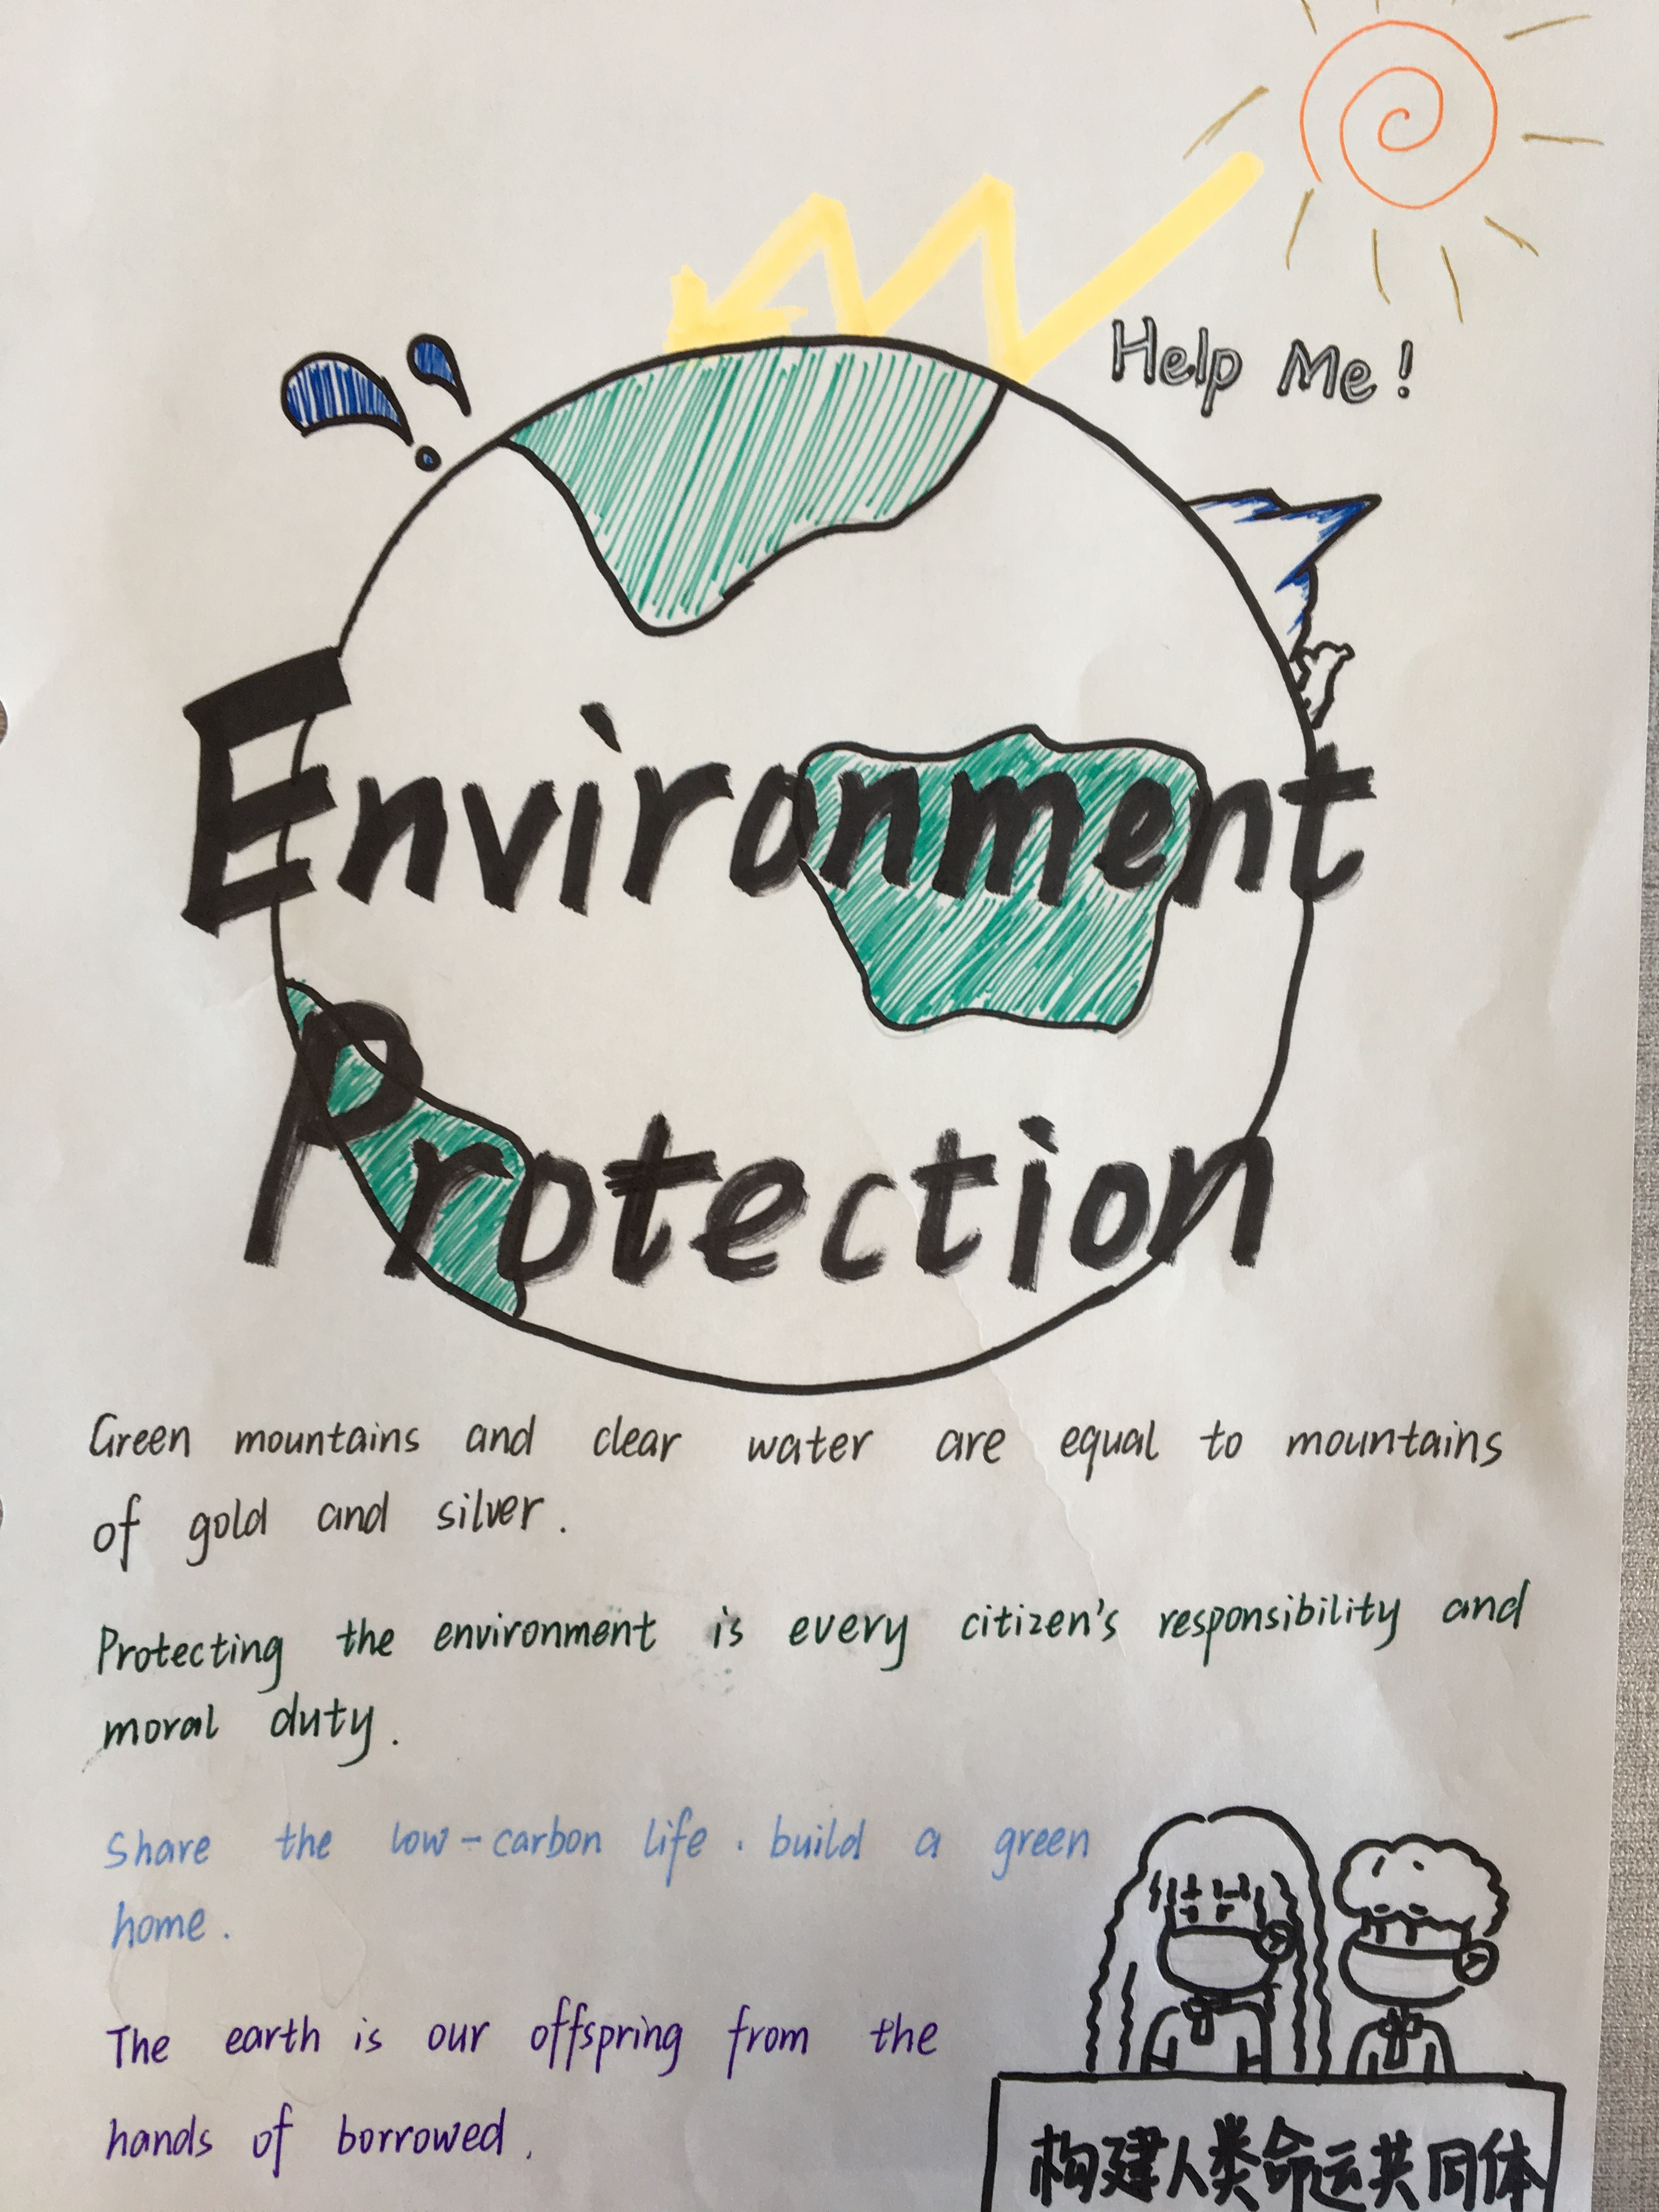 Help Me!
Environment
Protection
Green mountains and clear water are equal to mountains
of gold and silver.
Protecting the environment is every citizen's responsibility and
moral duty.
Share the low-carbon life. build a green
home.
The earth is our offspring from the
hands of borrowed.
构建人类命运共同体